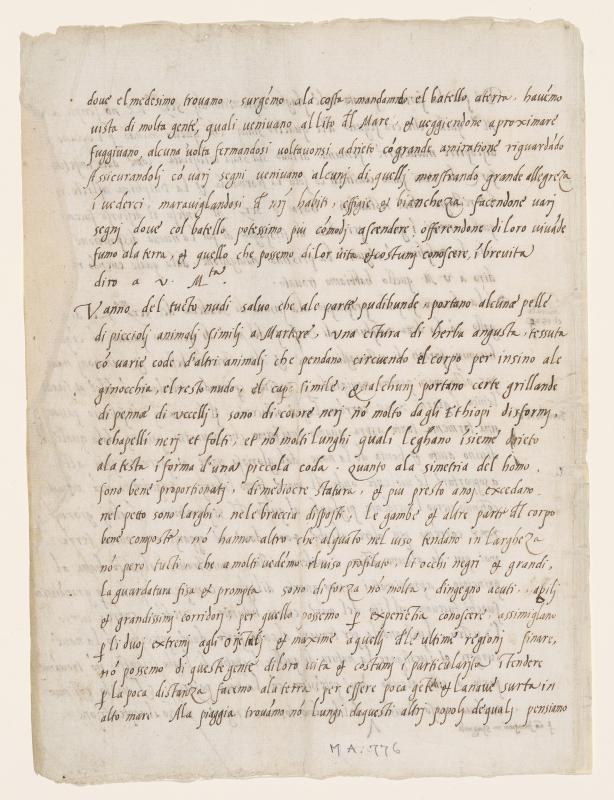 dove el medesimo trovano. surgémo ala costa mandando el batello aterra. havémo
vista di molta gente, quali venivano al lito d'l Mare, & veggiendone aproximare
fuggivano, alcuna volta fermandosi voltavonsi adrieto có grande amiratione riguardādo
Assicurandolj có varj segni venivano alcunj di quellj monstrando grande allegreza
í vederci, maraviglandosi d' nrj habiti, effigie & bianchezza, facendone varj
segnj dove col batello potessimo piu cómodj ascendere, offerendone di loro vivāde
fumo ala terra, & quello che possemo di lor vita & costumj conoscere, í brevita
diro a v. M.ta
Vanno del tucto nudi salvo che ale parte pudibunde portano alcune pelle
di piccioli animalj similj a Martore, una citura di herba angusta, tessuta
có varie code d'altri animalj che pendano circuendo el corpo per insino ale
ginocchia, el resto nudo, el capo simile, & alchunj portano certe grillande
di penne di uccellj, sono di colore nerj nó molto dagli Ethiopi disformj,
e chapelli nerj et folti, et nó molti lunghi quali leghano ísieme drieto
ala testa í forma d'una piccola coda. Quanto ala simetria del homo.
sono bene proportionatj, di mediocre statura, & piu presto anoj excedano.
nel petto sono larghi, nele braccia disposti, le gambe & altre parte d'l corpo
bene composte, nó hanno altro che alquāto nel viso tendano in largheza
nó pero tutti, che a molti vedémo il viso profilato, li occhi negri & grandi,
la guardatura fisa & prompta sono di forza nó molta, dingegno acuti, agilj
& grandissimj corridorj, per quello possemo p experietia conoscere, assimiglano
p li duoj extremj agli Orietalj & maxime a quellj d'le ultime regionj sinare,
nó possemo di queste gente di loro vita & costumj í particularita ítendere
p la poca distanza facemo ala terra per essere poca gēte & la nave surta in
alto mare. Ala piaggia trovámo nó lungi da questi altrj popolj de qualj pensiano
MA. 776